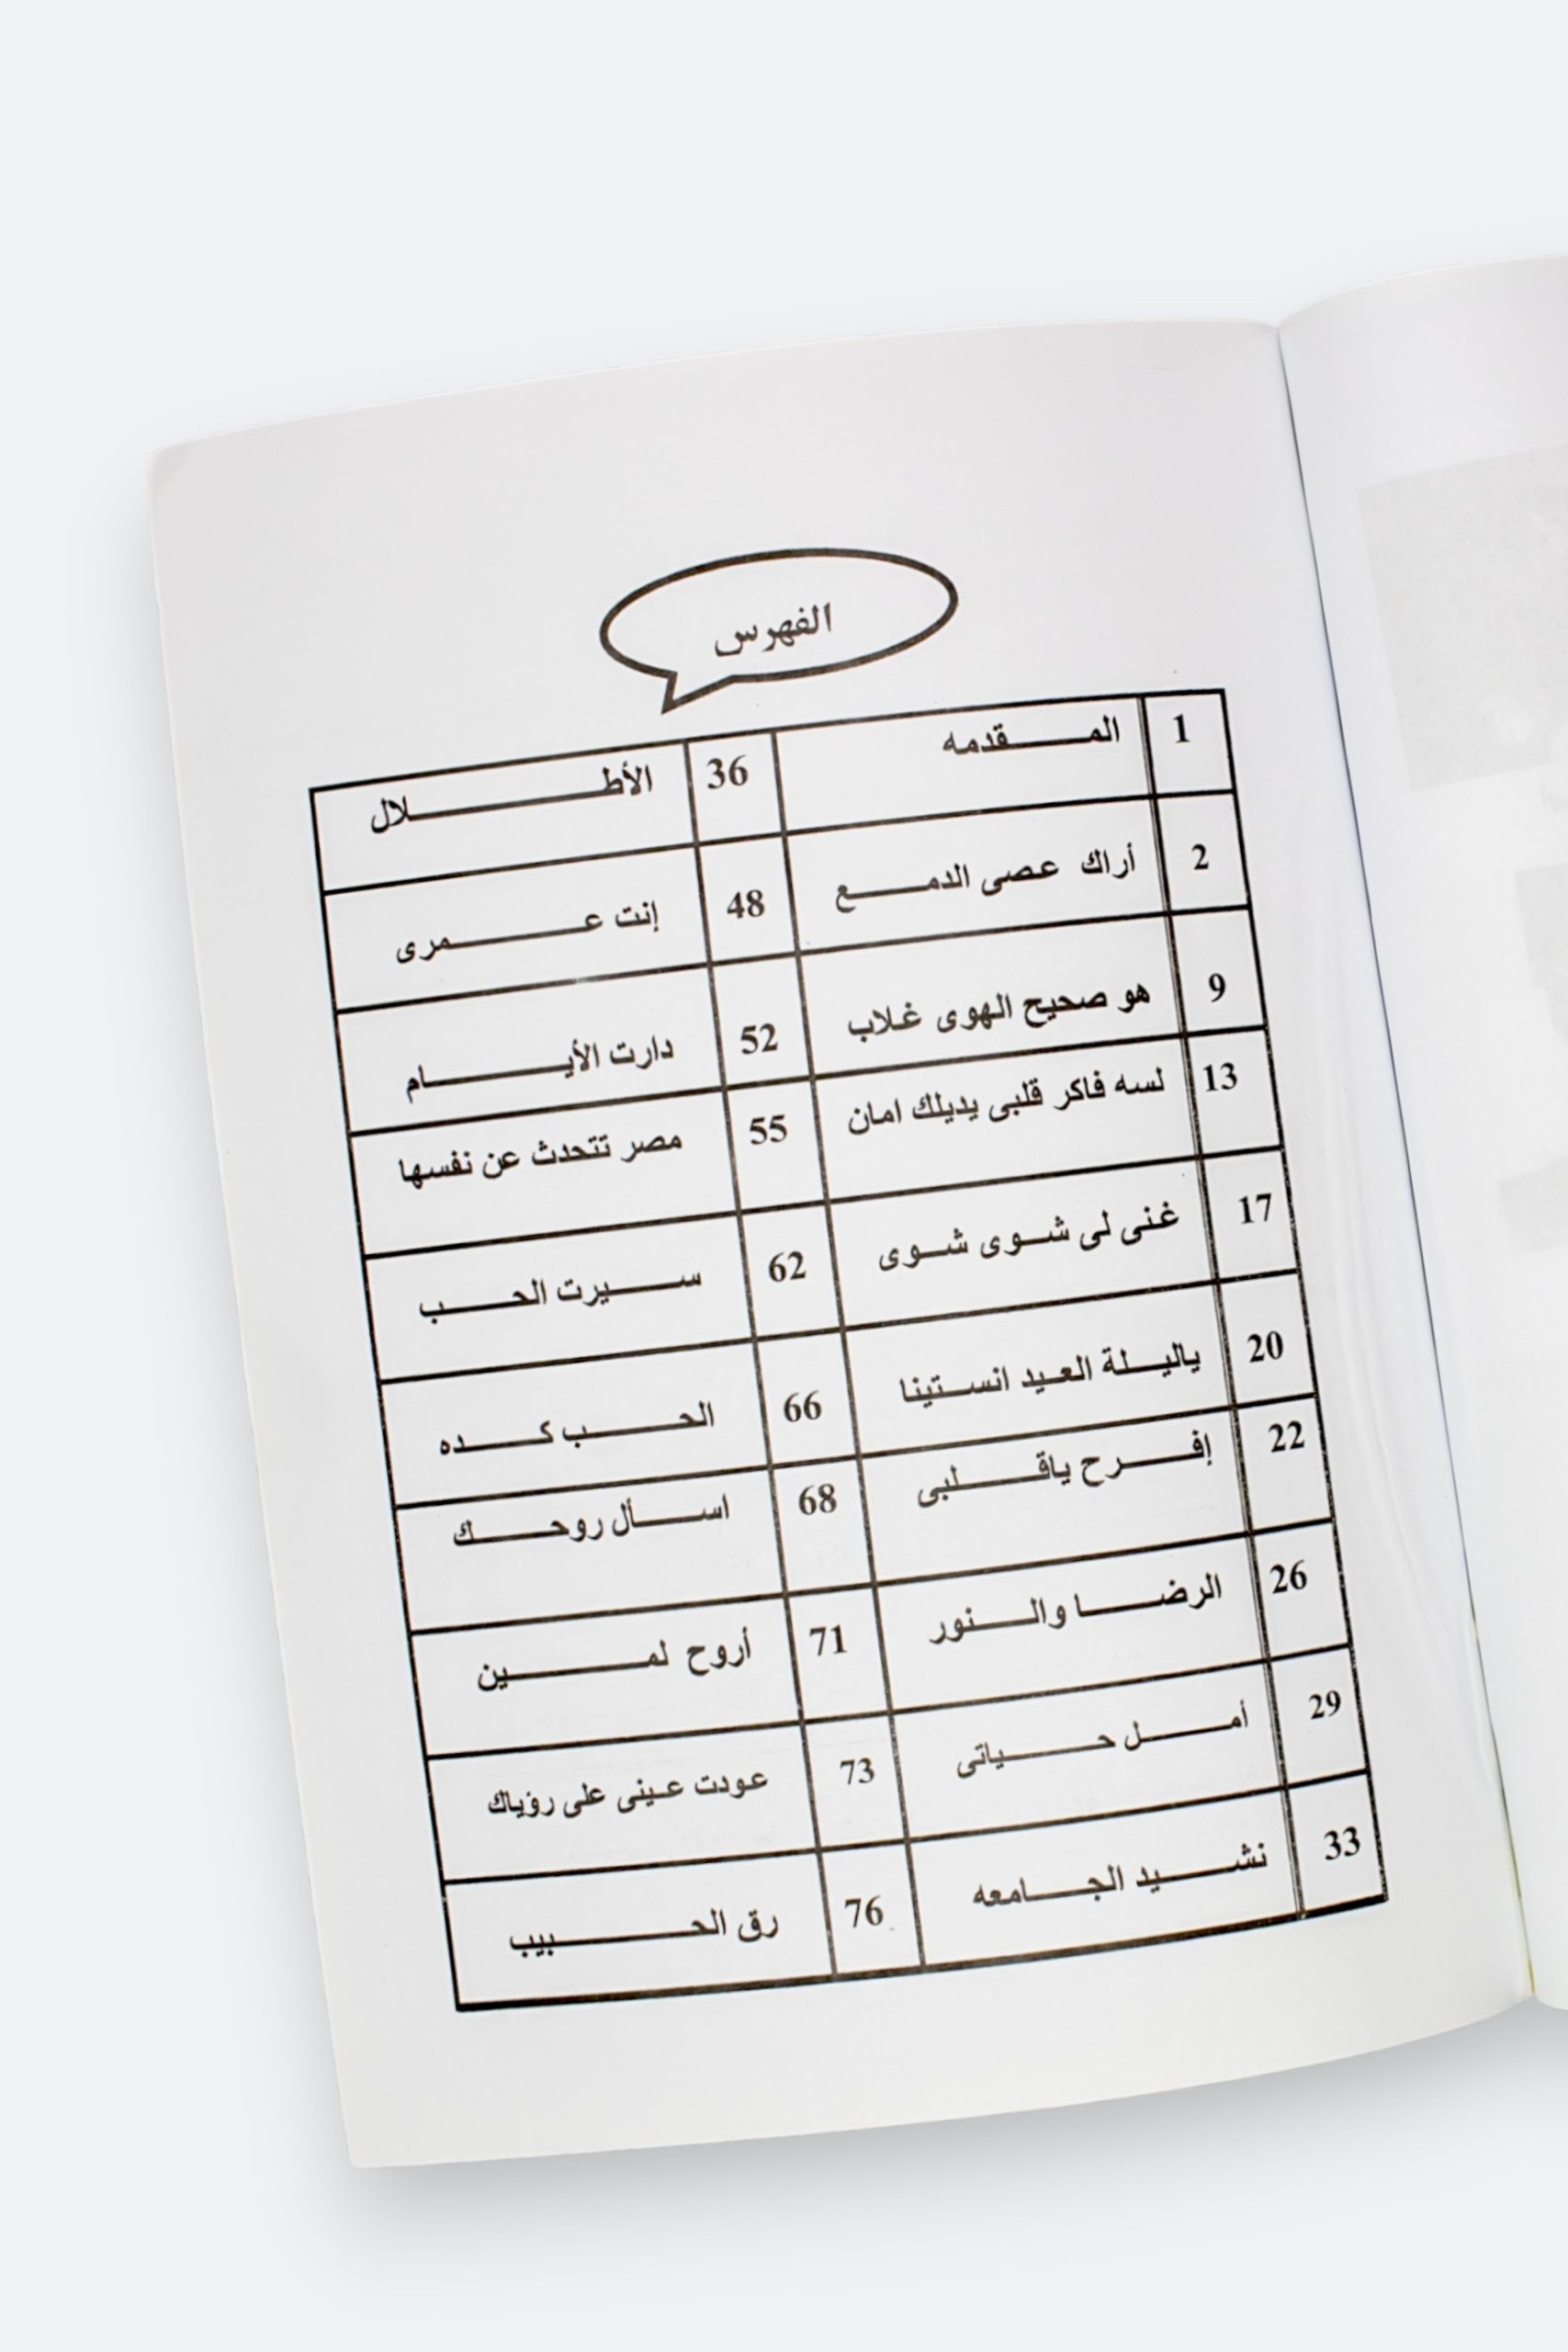 الفهرس
1 المقدمه 36 الأطلال
2 أراك عصى الدمع 48 إنت عمرى
9 هو صحيح الهوى غلاب 52 دارت الأيام
13 لسه فاكر قلبى يديلك امان 55 مصر تتحدث عن نفسها
17 غنى لى شوى شوى 62 سيرت الحب
20 ياليلة العيد انستينا 66 الحب كده
22 إفرح ياقلبى 68 اسأل روحك
26 الرضا والنور 71 أروح لمين
29 أمل حياتى 73 عودت عينى على رؤياك
33 نشيد الجامعه 76 رق الحبيب